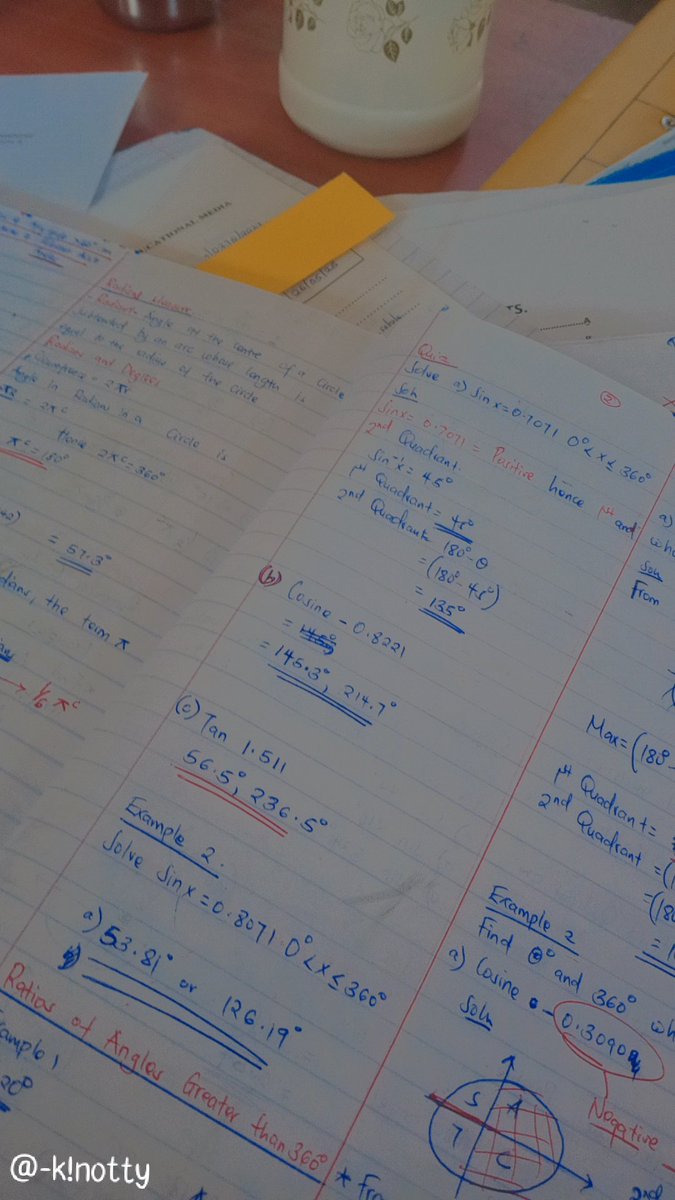 UCATIONAL MEDIA
Radial Measure
- Radian - Angle at the centre of a circle
subtended by an arc whose length is
equal to the radius of the circle
Radians and Degrees
Circumference = 2πr
Angle in Radians in a Circle is
= 2π^c
Hence 2π^c = 360°
π^c = 180°
= 57.3°
the term π
→ 1/6 π^c
Quiz
Solve a) Sin x = 0.7071 0° < x ≤ 360°
Soln
Sin x = 0.7071 = Positive hence 1st and
2nd Quadrant
Sin⁻¹x = 45°
1st Quadrant = 45°
2nd Quadrant = 180° - θ
= (180° - 45°)
= 135°
(b) Cosine - 0.8221
= 145.3°, 214.7°
(c) Tan 1.511
56.5°, 236.5°
Example 2.
Solve Sin x = 0.8071 0° < x ≤ 360°
a) 53.81° or 126.19°
Ratios of Angles Greater than 360°
20°
②
a)
Soln
From
Max = (180°
1st Quadrant =
2nd Quadrant = (1
= (180
Example 2
Find θ° and 360°
a) Cosine - 0.3090
Soln
Negative
S A
T C
* Fro
2nd
@-k!notty